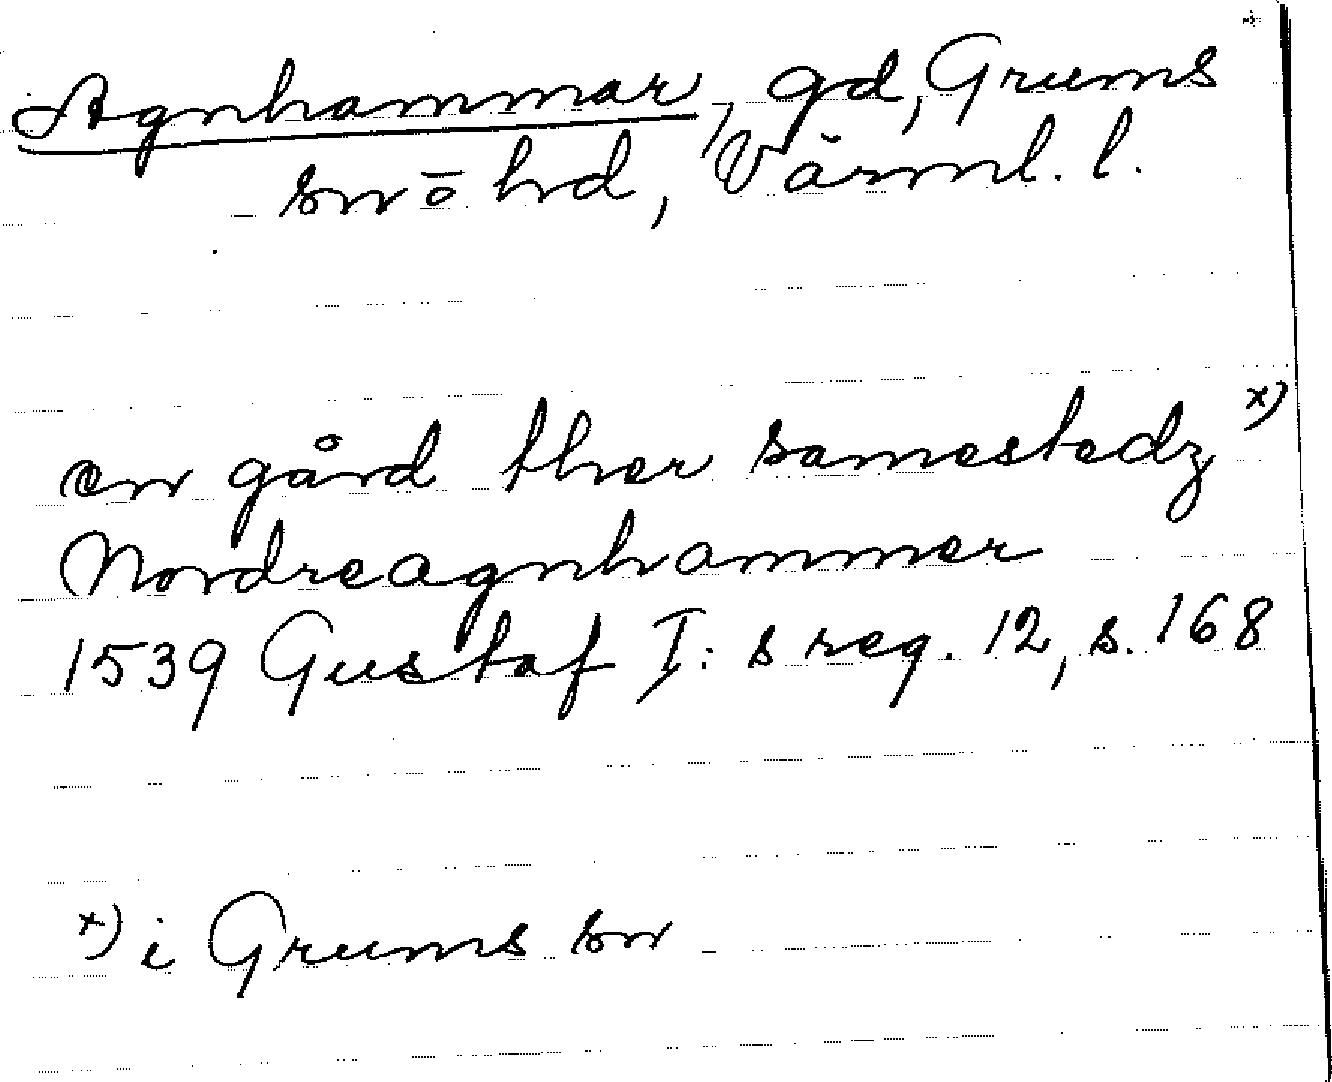 Agnhammar, gd, Grums
sn ō hd, Värml. l.
en gård ther samestedz x)
Nordreagnhammer
1539 Gustaf I:s reg. 12, s. 168
x) i Grums sn